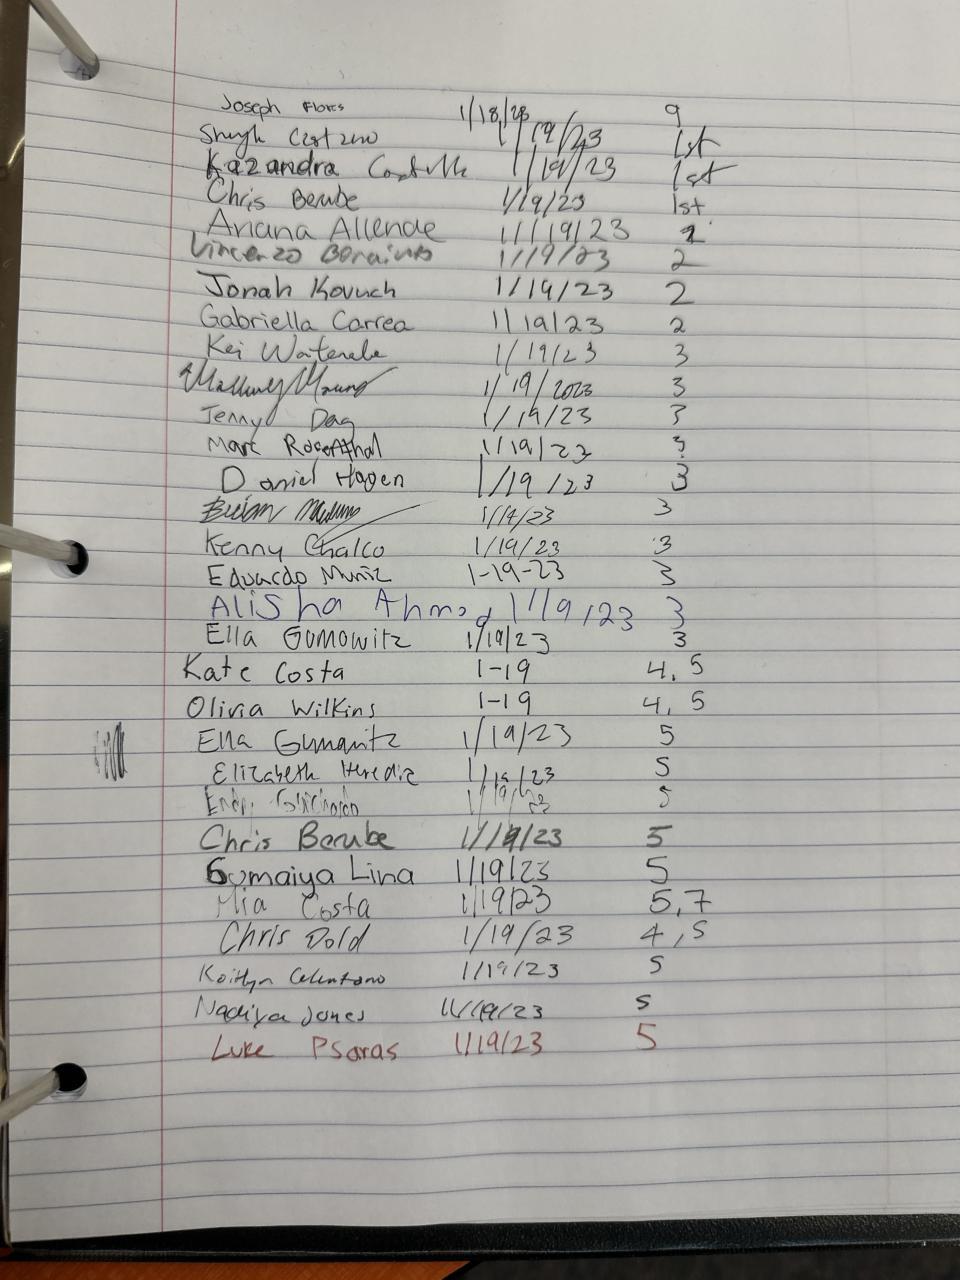 Joseph Flores 1/18/23 9
1/19/23 1st
Kazandra 1/19/23 1st
Chris Berube 1/19/23 1st
Ariana Allende 1/19/23 2
Vincenzo 1/19/23 2
Jonah Kovach 1/19/23 2
Gabriella Correa 1/19/23 2
Kei Watanabe 1/19/23 3
1/19/2023 3
Jenny 1/19/23 3
Marc Rosenthal 1/19/23 3
Daniel Hagen 1/19/23 3
Brian 3
Kenny Chalco 1/19/23 3
Eduardo Muñiz 1-19-23 3
Alisha Ahmed 1/19/23 3
Ella Gomowitz 1/19/23 3
Kate Costa 1-19 4, 5
Olivia Wilkins 1-19 4, 5
Ella 1/19/23 5
Elizabeth Heredia 1/19/23 5
1/19/23 5
Chris Berube 1/19/23 5
Sumaiya Lina 1/19/23 5
Mia Costa 1/19/23 5,7
Chris Dold 1/19/23 4,5
Kaitlyn Celentano 1/19/23 5
Nadiya Jones 5
Luke Psaras 1/19/23 5